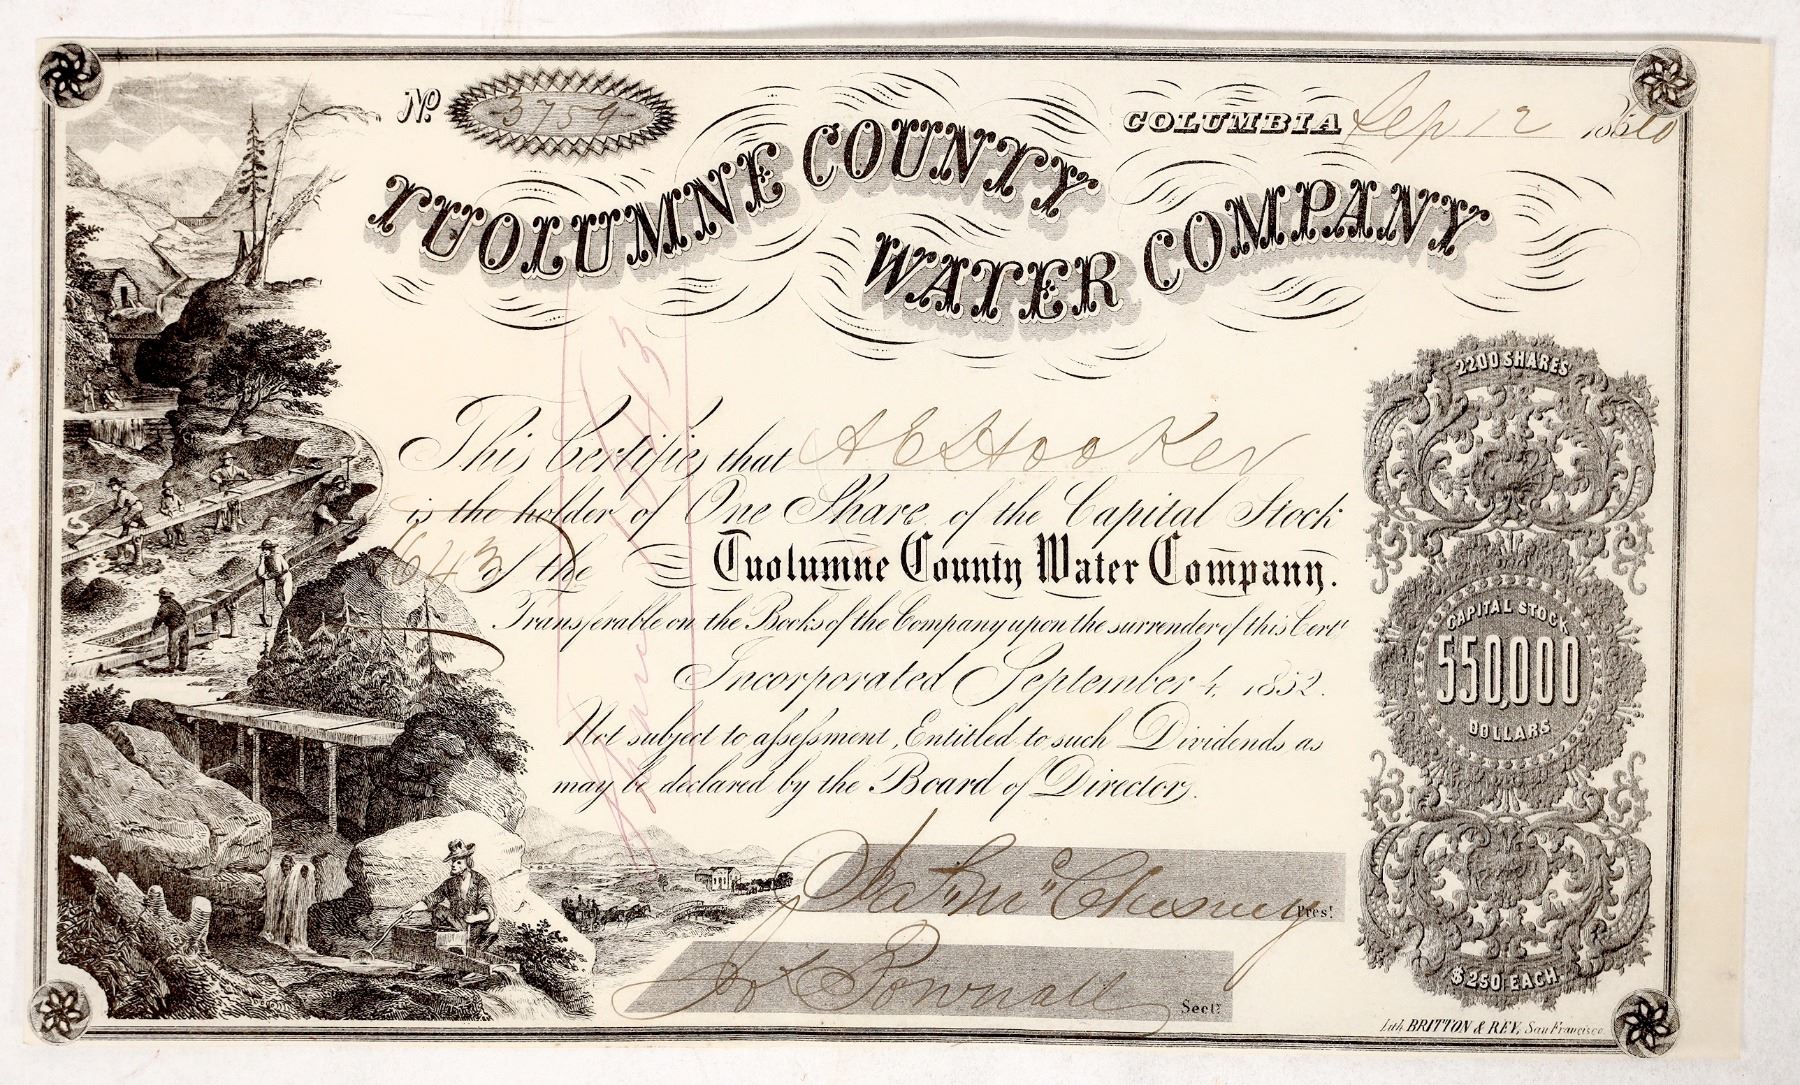 No. 3759
COLUMBIA Sep 12 1860
TUOLUMNE COUNTY
WATER COMPANY
2200 SHARES
This Certifies that A E Hooker
is the holder of One Share of the Capital Stock
643 of the Tuolumne County Water Company.
Transferable on the Books of the Company upon the surrender of this Cert.
Incorporated September 4, 1852.
Not subject to assessment, Entitled to such Dividends as
may be declared by the Board of Directors.
CAPITAL STOCK
550,000
DOLLARS
McChesney Prest
Jos Pownall Secty
$250 EACH
Lith. BRITTON & REY, San Francisco.